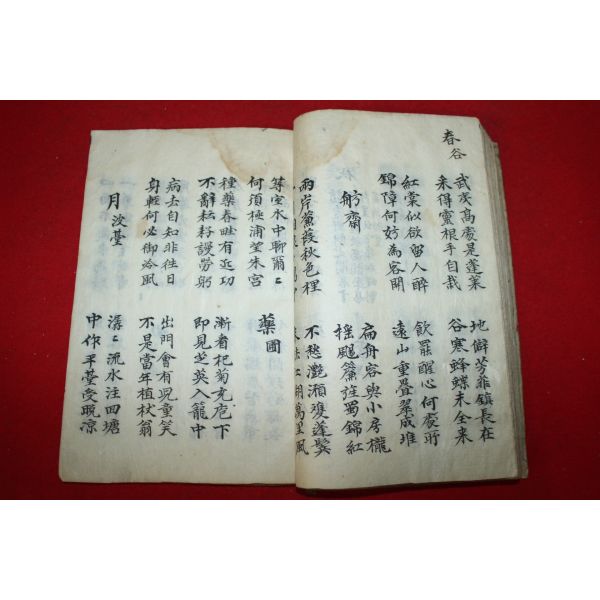 春谷
武夷高處是蓬萊 地僻芳菲鎮長在
采得靈根手自栽 谷寒蜂蝶未全來
紅棠似欲留人醉 飲罷醒心何處所
錦障何妨為容開 遠山重疊翠成堆
舫齋 扁舟容與小房櫳
搖颺簾旌蜀錦紅
兩岸蒹葭秋色裡 不愁灩澦瓊蓬鬢
江湖萬里風
等室水中聊爾〻
何須極浦望朱宮 藥圃
種藥春畦有近功 漸看杞菊充庖下
不辭耘耔謾勞躬 即見芝英入籠中
病去自知非往日 出門會有兒童笑
身輕何必御冷風 不是當年植杖翁
月波臺 潺〻流水注回塘
中作平臺受晚凉